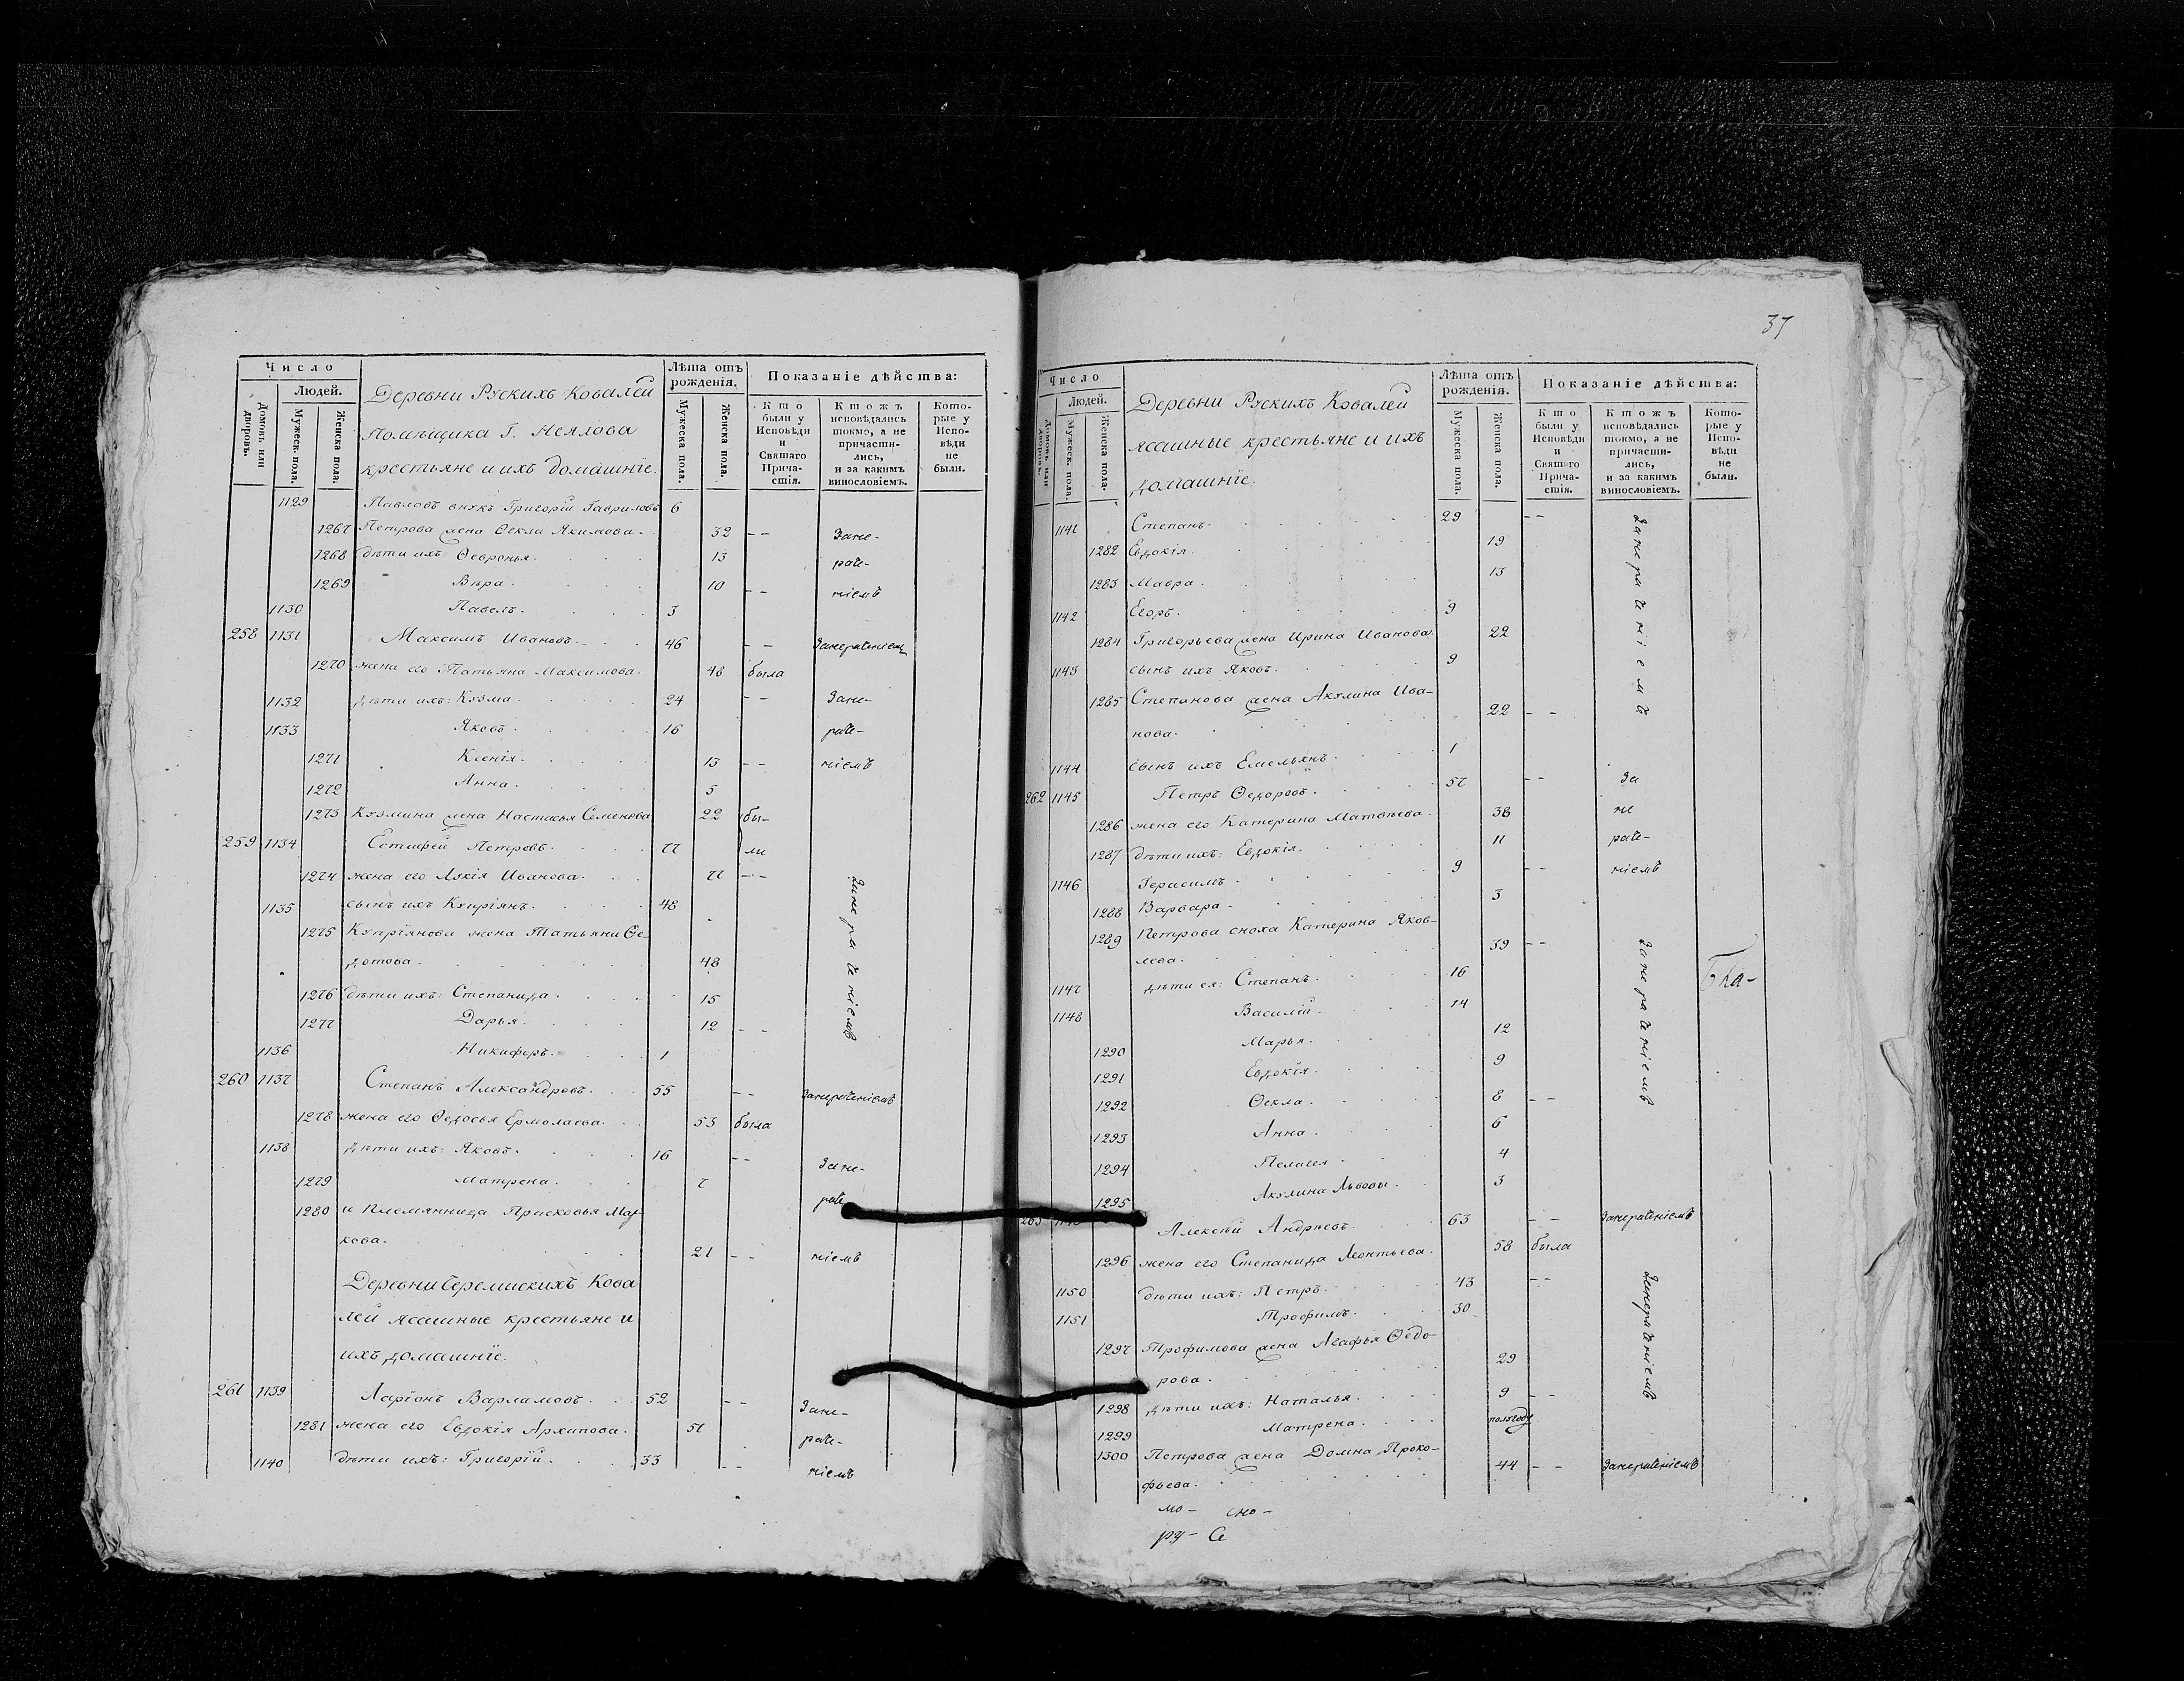 Число
Людей.
Домовъ или дворовъ.
Мужеск. пола.
Женска пола.
Деревни Рускихъ Ковалей
Помѣщика Г. Неялова
крестьяне и ихъ домашнїе.
Лѣта отъ рожденія.
Мужеска пола.
Женска пола.
Показаніе дѣйства:
Кто были у Исповѣди и Святаго Причастія.
Ктожъ исповѣдались токмо, а не причастились, и за какимъ винословіемъ.
Которые у Исповѣди не были.
1129 Павловъ внукъ Григорїй Гавриловъ 6
1267 Петрова жена Ѳекла Якимова 32 -- Зане-
1268 дѣти ихъ: Ѳевронья 13 раче-
1269 Вѣра 10 -- нїемъ
1130 Павелъ 3
258 1131 Максимъ Ивановъ 46 -- Занераченіем
1270 жена его Татьяна Максимова 48 была
1132 дѣти ихъ: Козма 24 -- Зане-
1133 Яковъ 16 раче-
1271 Ксенія 13 -- ніемъ
1272 Анна 5
1273 Козмина жена Настасья Семенова 22 бы-
259 1134 Естифей Петровъ 77 ли
1274 жена его Лукія Иванова 77 -- Занераченіемъ
1135 сынъ ихъ Купріянъ 48
1275 Купріянова жена Татьяна Ѳе-
дотова 48
1276 дѣти ихъ: Степанида 15
1277 Дарья 12 --
1136 Никифоръ 1
260 1137 Степанъ Александровъ 55 -- Занераченіемъ
1278 жена его Ѳедосья Ермолаева 53 была
1138 дѣти ихъ: Яковъ 16 -- Зане-
1279 Матрена 7 раче
1280 и Племянница Прасковья Мар-
кова 21 -- ніемъ
Деревни Черемискихъ Кова
лей ясашные крестьяне и
ихъ домашнїе.
261 1139 Ларїонъ Варламовъ 52 -- Зане-
1281 жена его Евдокія Архипова 51 раче-
1140 дѣти ихъ: Григорїй 33 -- ніемъ
37
Число
Людей.
Домовъ или дворовъ.
Мужеск. пола.
Женска пола.
Деревни Рускихъ Ковалей
ясашные крестьяне и ихъ
домашнїе.
Лѣта отъ рожденія.
Мужеска пола.
Женска пола.
Показаніе дѣйства:
Кто были у Исповѣди и Святаго Причастія.
Ктожъ исповѣдались токмо, а не причастились, и за какимъ винословіемъ.
Которые у Исповѣди не были.
1141 Степанъ 29 -- Занераченіемъ
1282 Евдокія 19
1283 Мавра 13
1142 Егоръ 9
1284 Григорьева жена Ирина Иванова 22
1143 сынъ ихъ Яковъ 9
1285 Степанова жена Акулина Ива-
нова 22 --
1144 сынъ ихъ Емельянъ 1
262 1145 Петръ Ѳедоровъ 57 -- За
1286 жена его Катерина Матвѣева 38 не
1287 дѣти ихъ: Евдокія 11 раче-
1146 Герасимъ 9 -- ніемъ
1288 Варвара 3
1289 Петрова сноха Катерина Яков-
лева 39 -- Занераченіемъ
1147 дѣти ея: Степанъ 16
Бка-
1148 Василїй 14
1290 Марья 12
1291 Евдокїя 9
1292 Ѳекла 8 --
1293 Анна 6
1294 Пелагея 4
1295 Акулина Львовы 3
263 1149 Алексѣй Андрѣевъ 63 -- Занераченіемъ
1296 жена его Степанида Леонтьева 58 была
1150 дѣти ихъ: Петръ 43 -- Занераченіемъ
1151 Трофимъ 30
1297 Трофимова жена Агафья Ѳедо-
рова 29
1298 дѣти ихъ: Наталья 9 --
1299 Матрена полгоду
1300 Петрова жена Домна Проко-
фьева 44 -- Занераченіемъ
мо- сно-
ру- Се